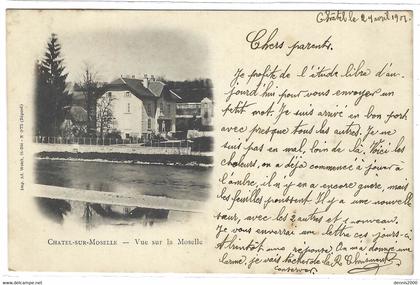 Châtel le 24 avril 190
Chers parents.
Je profite de l'étude libre d'au-
jourd'hui pour vous envoyer un
petit mot. Je suis arrivé en bon port
avec presque tous les autres. Je ne
suis pas en mal, loin de la. Voici les
chaleurs, on a déja commencé à jouer à
l'ombre, il n'y en a encore guère, mais
les feuilles Il y a une nouvelle
sœur, avec les 2 autres et 1 nouveau.
Je vous enverrai un lettre ces jours-ci
Attention une réponse. On m'a donné une
larme, je vais tâcher de la
conserver
CHATEL-SUR-MOSELLE — Vue sur la Moselle
Imp. Ad. Weick, St-Dié - N° 975 (Déposé)
www.delcampe.net
dennis2000